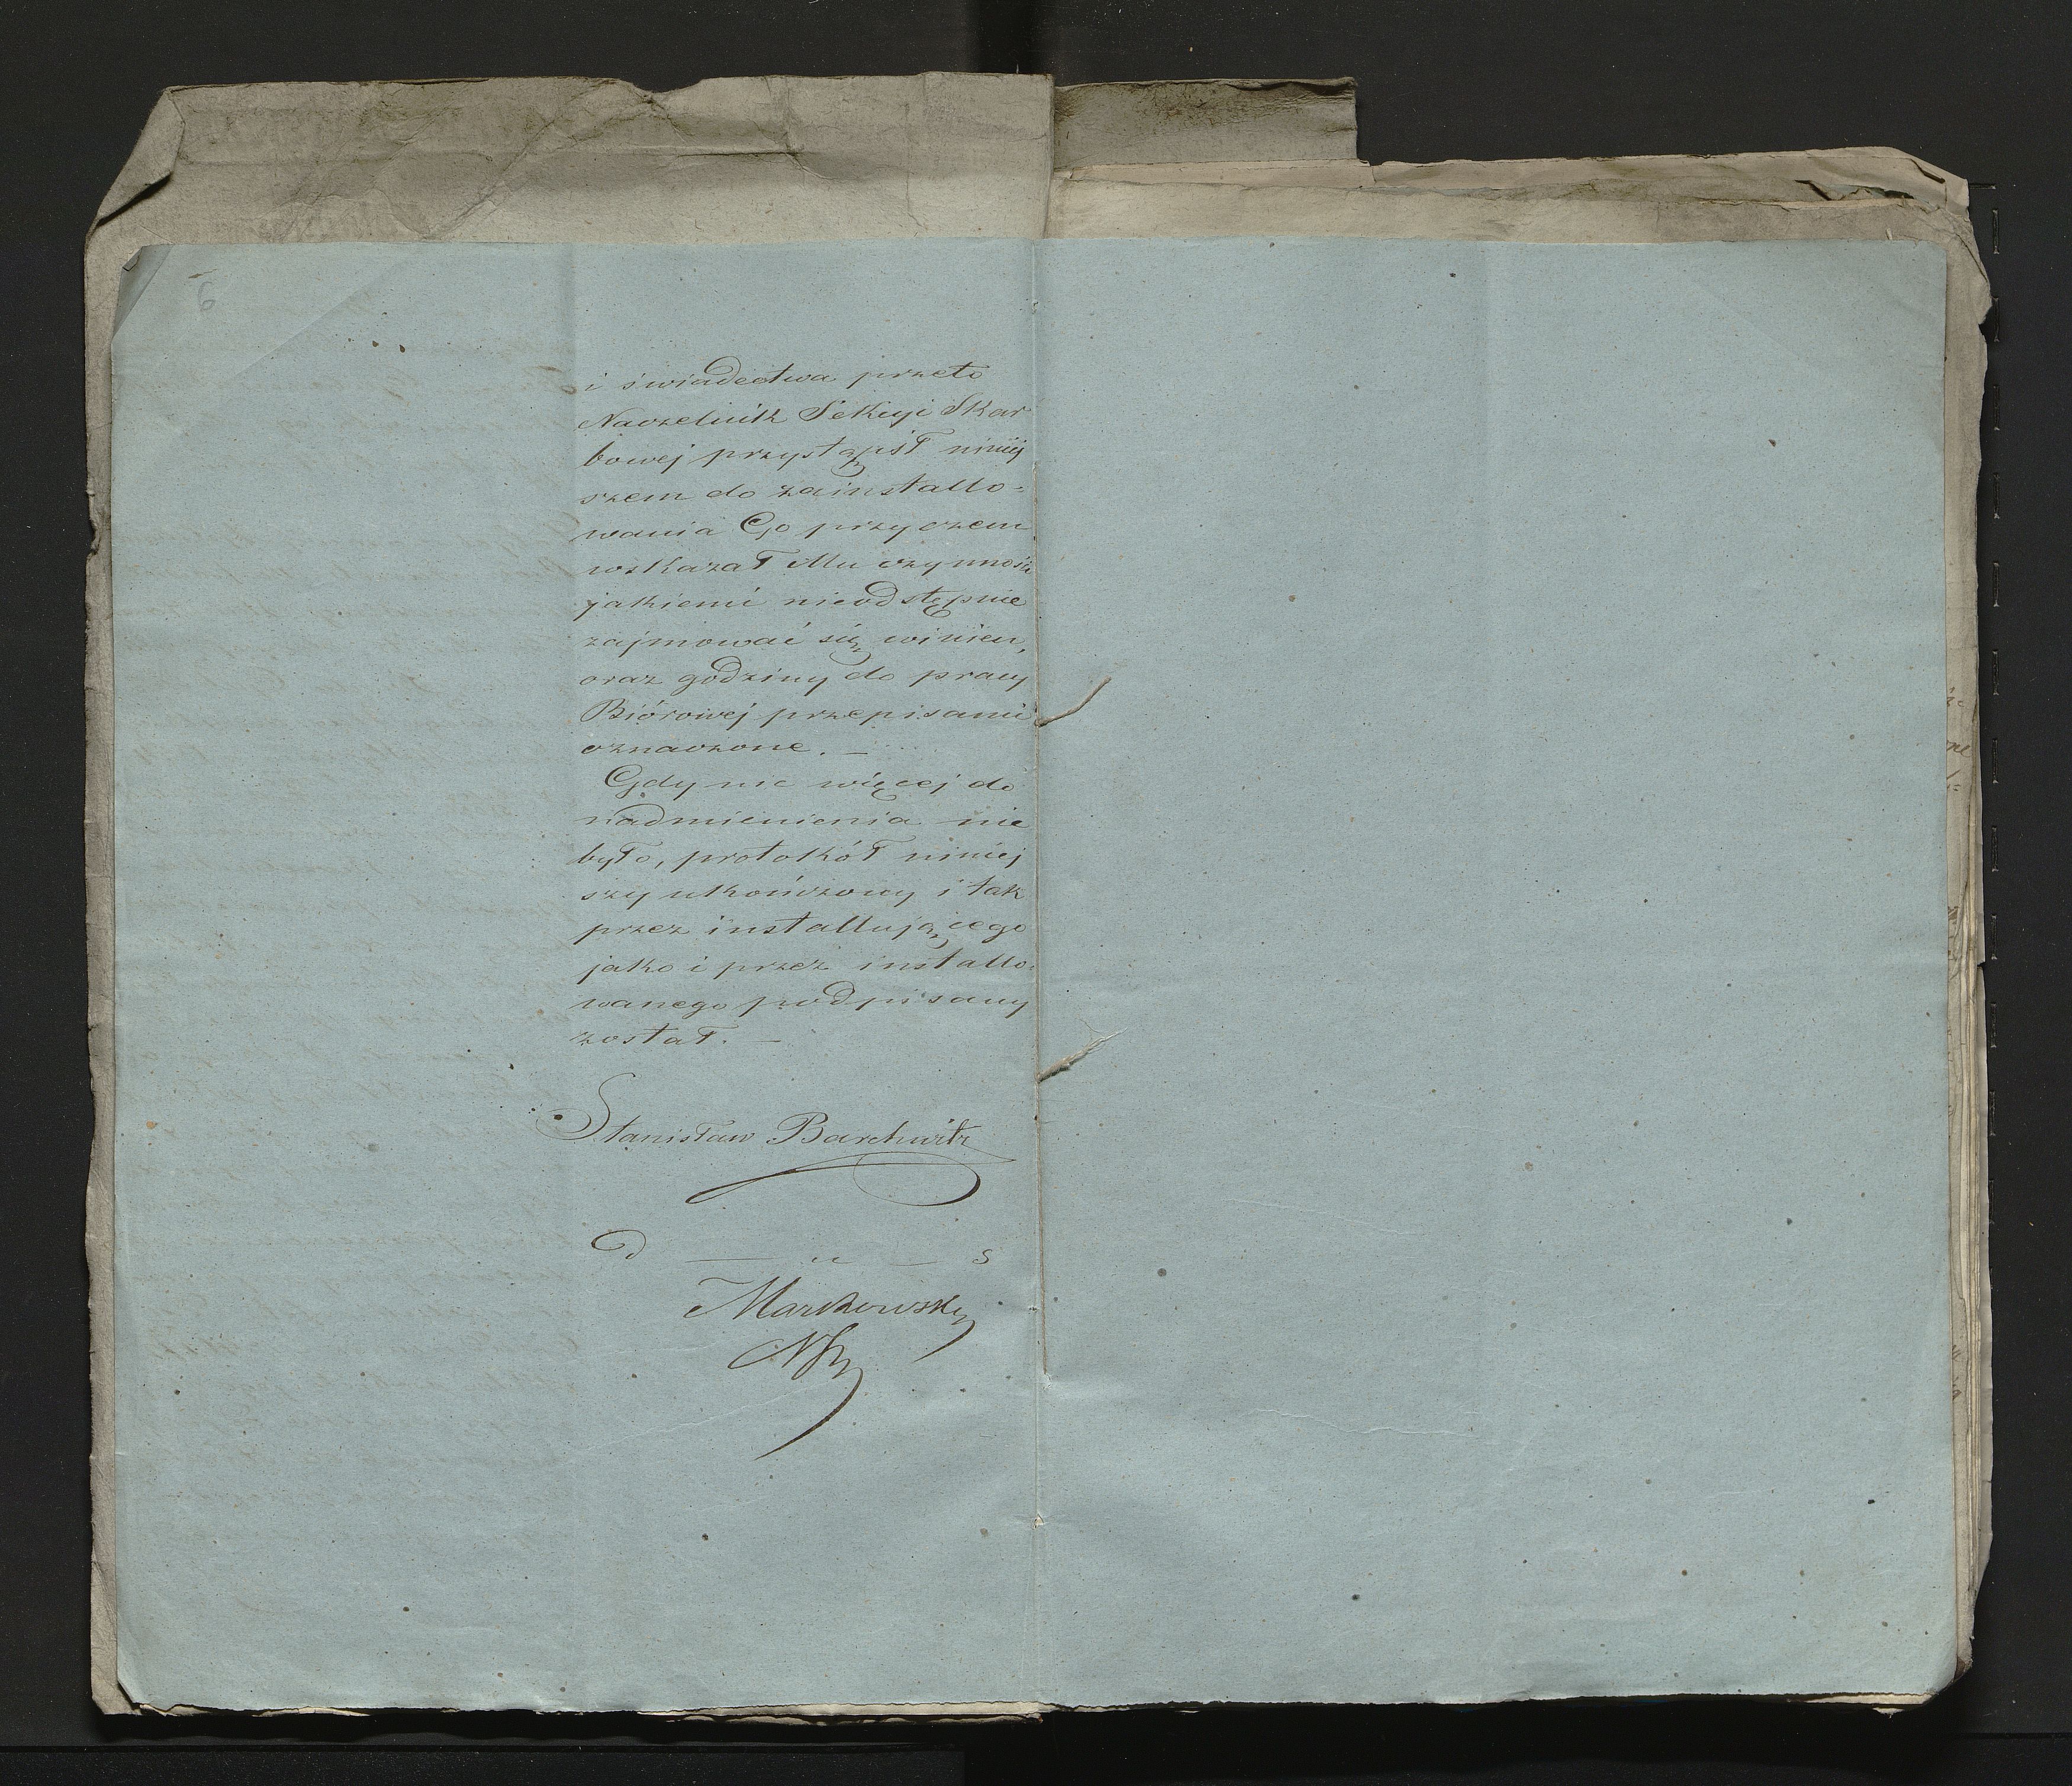 i świadectwa przeto
Naczelnik Sekcyi Skar
bowej przystąpił niniej
szem do zainstallo=
wania Go przyczem
wskazał Mu czynności
jakiemi nieodstępnie
zajmować się winien,
oraz godziny do pracy
Biórowej przepisami
oznaczone. —
Gdy nic więcej do
nadmienienia nie
było, protokół niniej
szy ukończony i tak
przez installującego
jako i przez installo=
wanego podpisany
został. —
Stanisław Barchwitz
D — u — s
Markowski